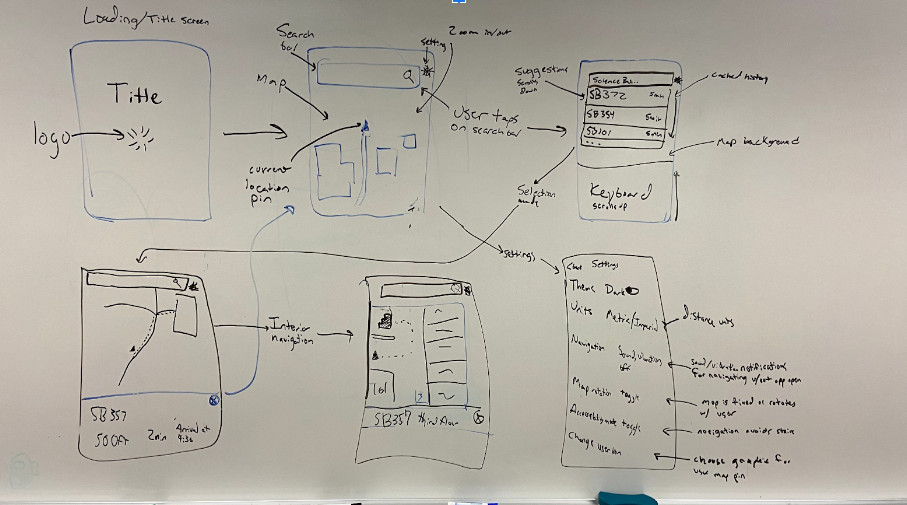 Loading/Title screen
Title
logo
Search
bar
Map
current
location
pin
setting
Zoom in/out
User taps
on search bar
Suggestions
Scroll
Down
Science Bu...
SB372 5min
SB354 5min
SB101 5min
...
cached history
Map background
Keyboard
Selection
made
settings
SB357
500ft 2min Arrival at
9:36
Interior
navigation
SB357 third floor
Settings
Theme Dark
Units Metric/Imperial
distance units
Navigation Sound, vibration
off
Sound/vibrate notifications
for navigating w/out app open
Map rotation toggle
map is fixed or rotates
w/ user
Accessibility mode toggle
navigation avoids stairs
Change user icon
choose graphic for
user map pin